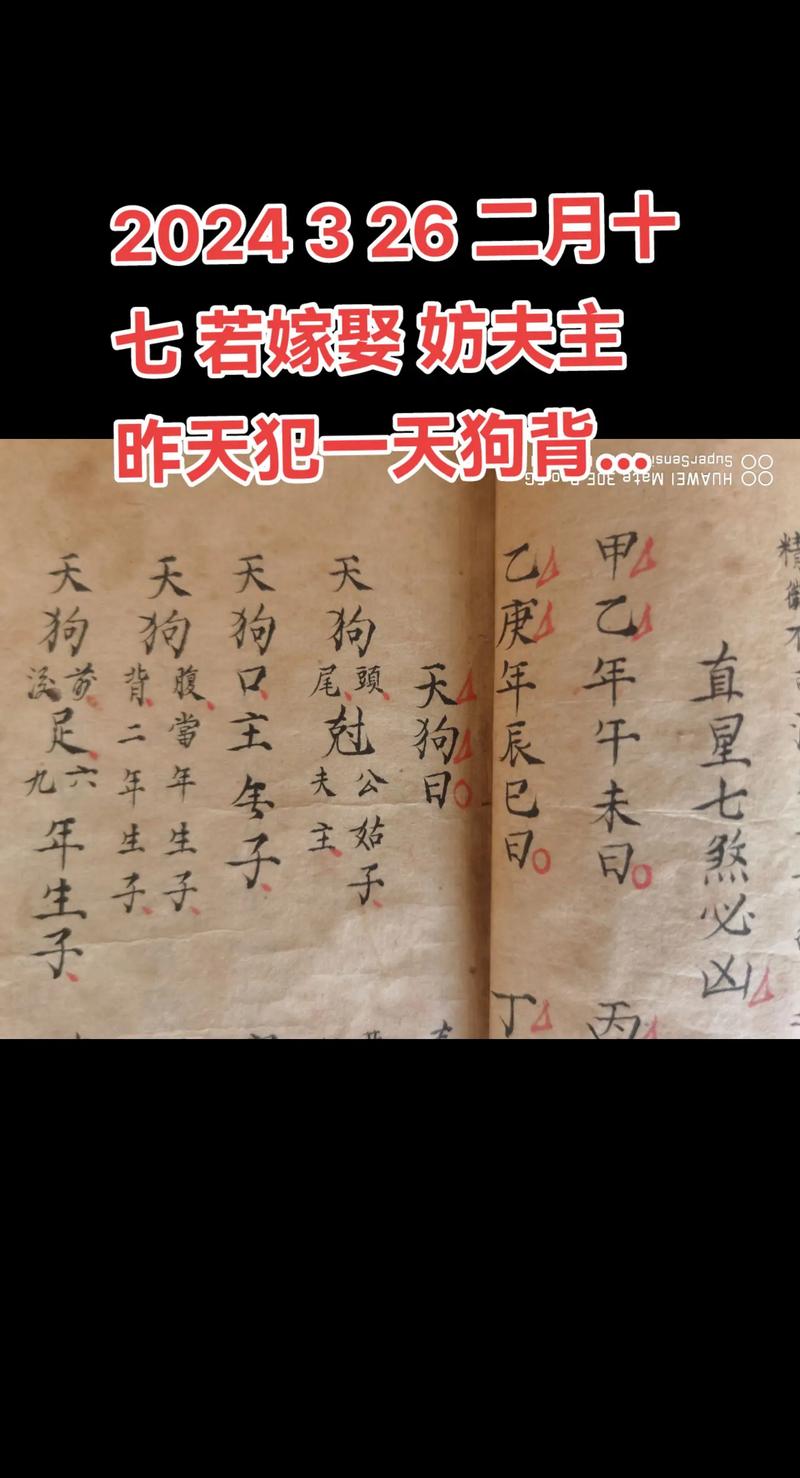 2024 3 26 二月十
七 若嫁娶 妨夫主
昨天犯一天狗背...
HUAWEI Mate 30E Pro 5G
直星七煞必凶
甲乙年午未日
乙庚年辰巳日
丙
丁
天狗日
天狗頭尾尅公姑子夫主
天狗口主無子
天狗腹背當年生子二年生子
天狗前後足六九年生子